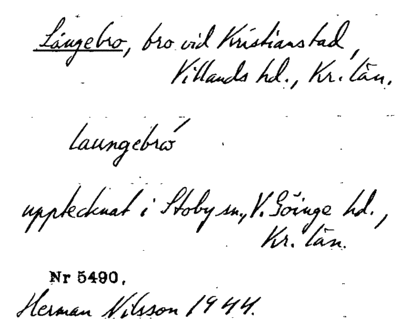 Långebro, bro vid Kristianstad,
Villands hd., Kr. län.
laungebró
upptecknat i Stoby sn., V. Göinge hd.,
Kr. län.
Nr 5490,
Herman Nilsson 1944.